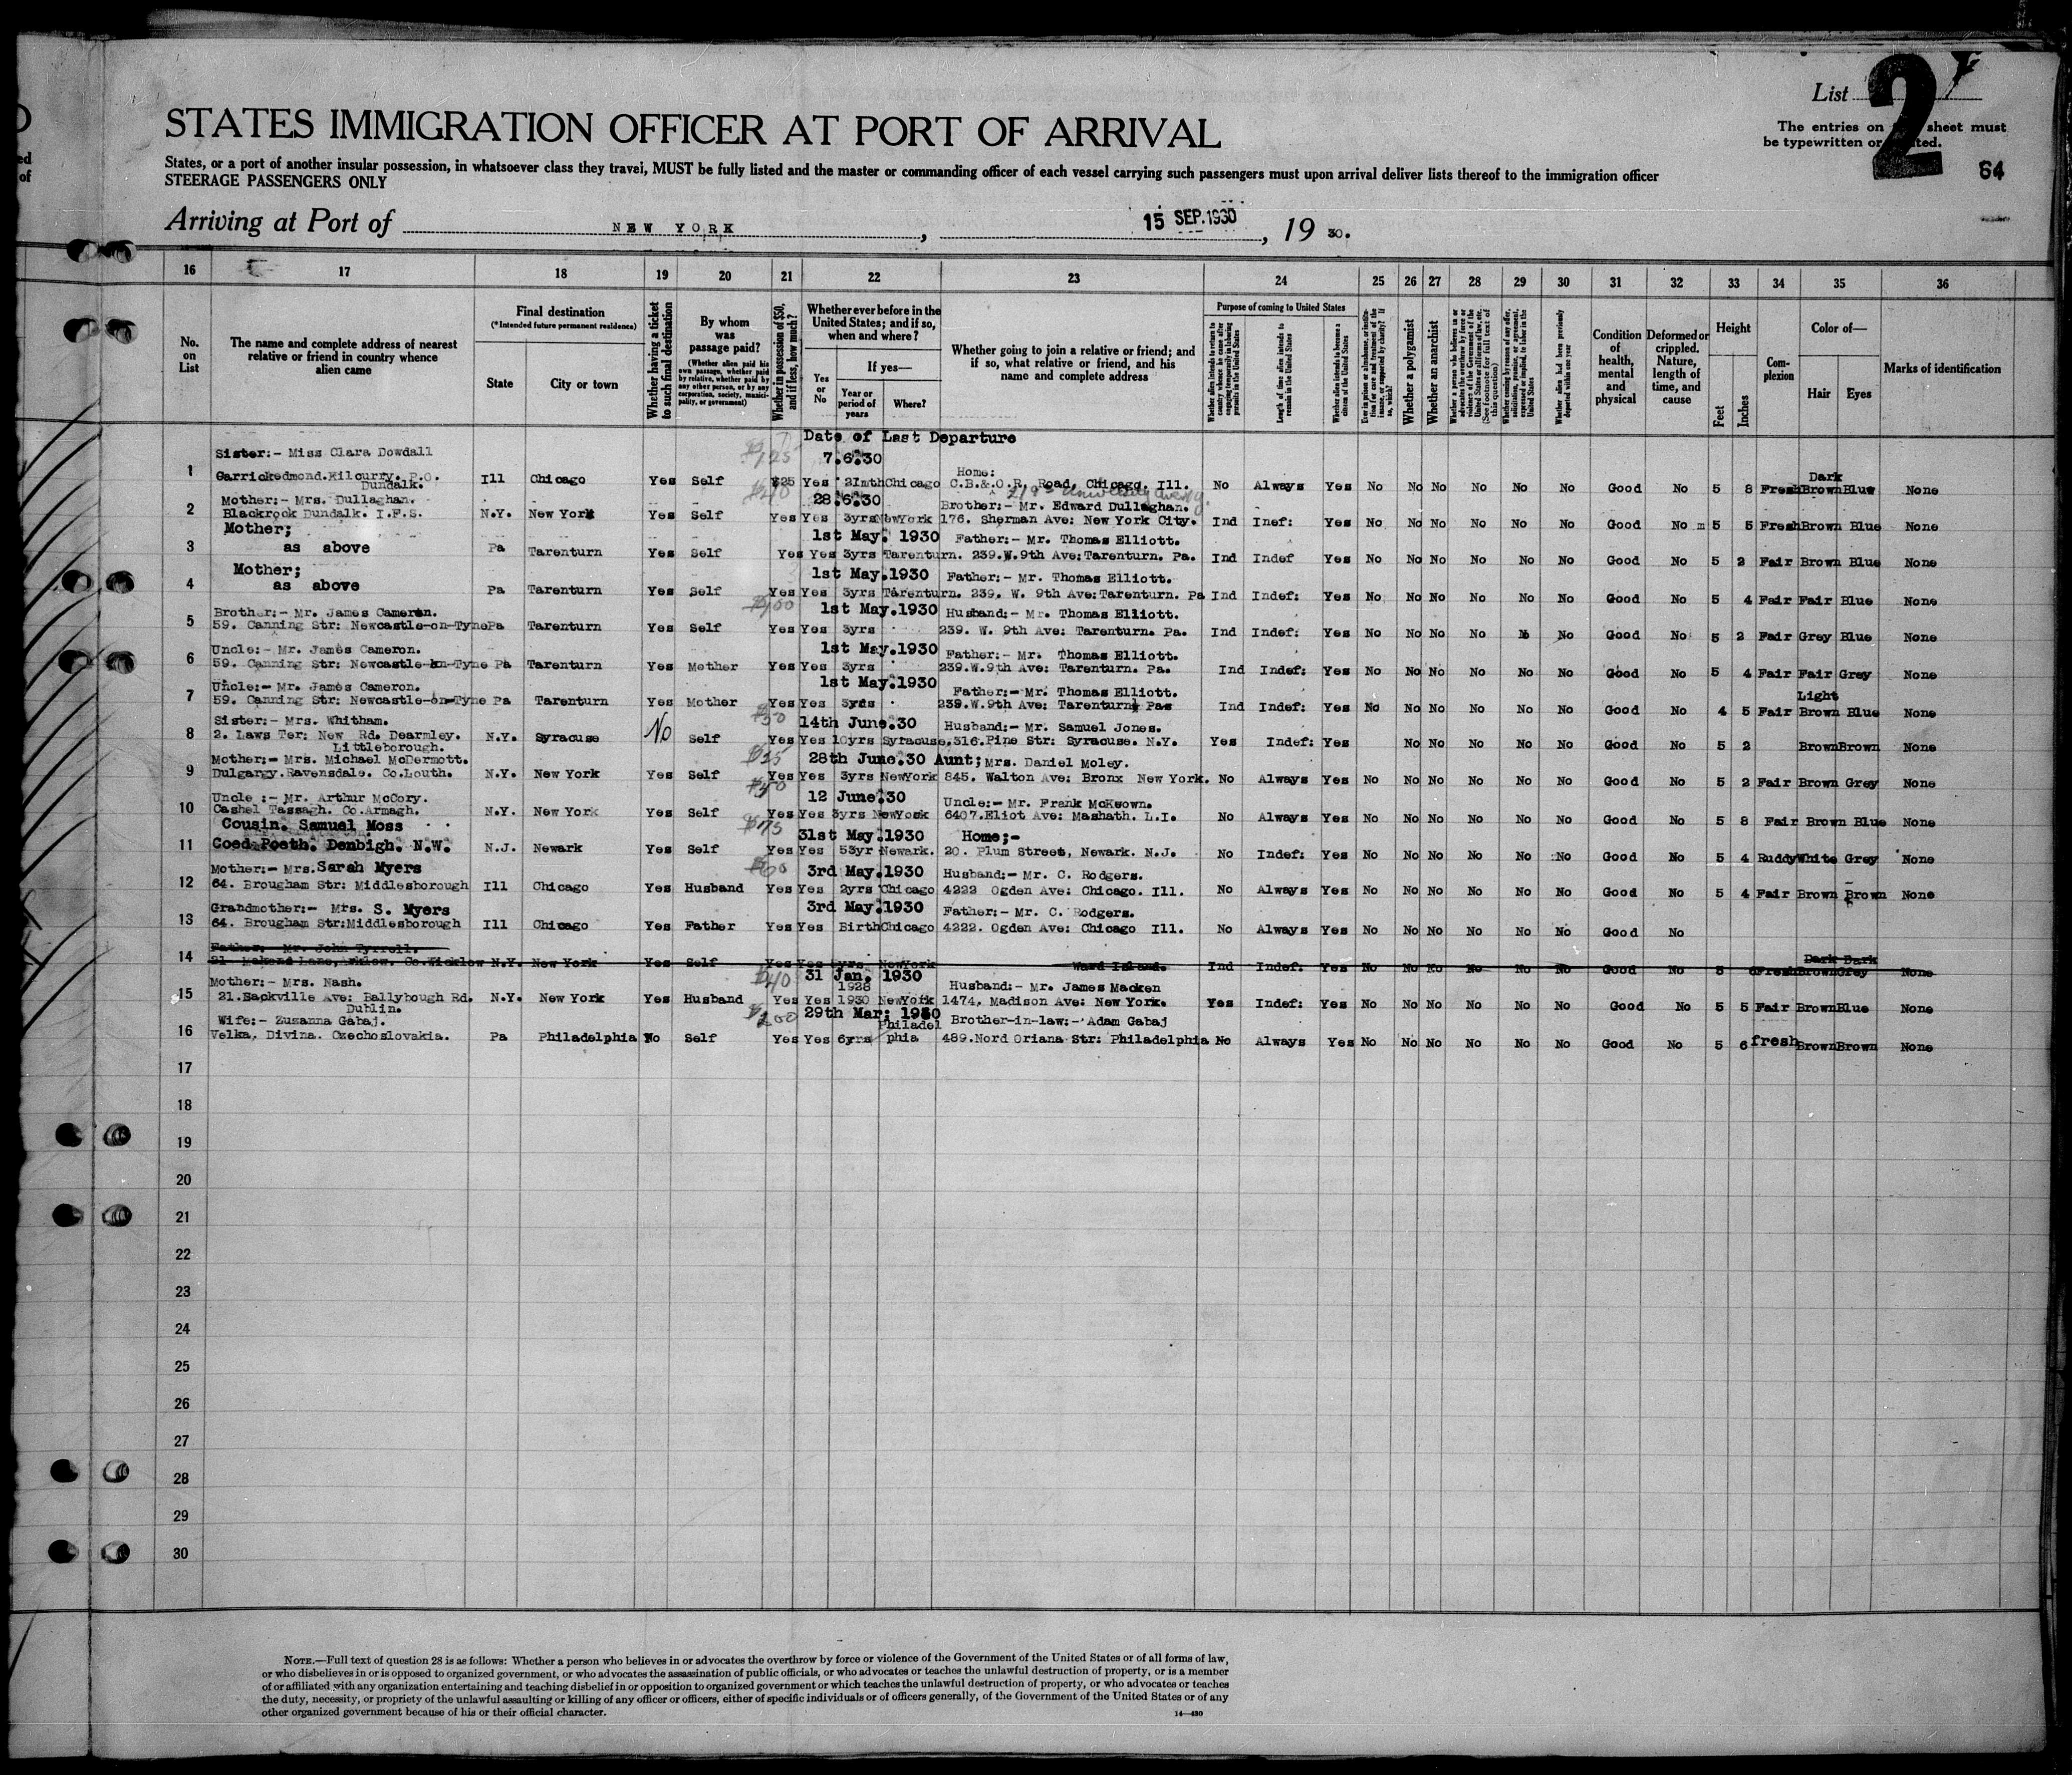 List 2
The entries on sheet must
be typewritten or
64
STATES IMMIGRATION OFFICER AT PORT OF ARRIVAL
States, or a port of another insular possession, in whatsoever class they travel, MUST be fully listed and the master or commanding officer of each vessel carrying such passengers must upon arrival deliver lists thereof to the immigration officer
STEERAGE PASSENGERS ONLY
Arriving at Port of NEW YORK, 15 SEP. 1930, 19 30.
16 17 18 19 20 21 22 23 24 25 26 27 28 29 30 31 32 33 34 35 36
No. on List
The name and complete address of nearest relative or friend in country whence alien came
Final destination
(*Intended future permanent residence)
State
City or town
Whether having a ticket to such final destination
By whom was passage paid?
(Whether alien paid his own passage, whether paid by relative, whether paid by any other person, or by any corporation, society, municipality, or government)
Whether in possession of $50, and if less, how much?
Whether ever before in the United States; and if so, when and where?
Yes or No
If yes—
Year or period of years
Where?
Whether going to join a relative or friend; and if so, what relative or friend, and his name and complete address
Purpose of coming to United States
Length of time alien intends to remain in the United States
Whether alien intends to become a citizen of the United States
Whether a polygamist
Whether an anarchist
Condition of health, mental and physical
Deformed or crippled. Nature, length of time, and cause
Height
Feet
Inches
Complexion
Color of—
Hair
Eyes
Marks of identification
Date of Last Departure
Sister:- Miss Clara Dowdall 7.6.30 Home: Dark
1 Garrickedmond.Kilcurry. P.O. Dundalk. Ill Chicago Yes Self $25 Yes 21mth Chicago C.B.&.O.R. Road, Chicago. Ill. No Always Yes No No No No No No Good No 5 8 Fresh Brown Blue None
Mother:- Mrs. Dullaghan. 28.6.30 Brother:- Mr. Edward Dullaghan.
2 Blackrock Dundalk. I.F.S. N.Y. New York Yes Self Yes Yes 3yrs NewYork 176. Sherman Ave: New York City. Ind Inef: Yes No No No No No No Good No 5 5 Fresh Brown Blue None
Mother; 1st May. 1930 Father:- Mr. Thomas Elliott.
3 as above Pa Tarenturn Yes Self Yes Yes 3yrs Tarenturn. 239.W.9th Ave:Tarenturn. Pa. Ind Indef Yes No No No No No No Good No 5 2 Fair Brown Blue None
Mother; 1st May.1930 Father:- Mr. Thomas Elliott.
4 as above Pa Tarenturn Yes Self Yes Yes 3yrs Tarenturn. 239. W. 9th Ave:Tarenturn. Pa Ind Indef: Yes No No No No No No Good No 5 4 Fair Fair Blue None
Brother:- Mr. James Cameron. $100 1st May.1930 Husband:- Mr. Thomas Elliott.
5 59. Canning Str: Newcastle-on-Tyne Pa Tarenturn Yes Self Yes Yes 3yrs 239. W. 9th Ave: Tarenturn. Pa. Ind Indef: Yes No No No No No No Good No 5 2 Fair Grey Blue None
Uncle:- Mr. James Cameron. 1st May.1930 Father:- Mr. Thomas Elliott.
6 59. Canning Str: Newcastle-on-Tyne Pa Tarenturn Yes Mother Yes Yes 3yrs 239.W.9th Ave: Tarenturn. Pa. Ind Indef: Yes No No No No No No Good No 5 4 Fair Fair Grey None
Uncle:- Mr. James Cameron. 1st May.1930 Father:- Mr. Thomas Elliott. Light
7 59. Canning Str: Newcastle-on-Tyne Pa Tarenturn Yes Mother Yes Yes 3yrs 239.W.9th Ave: Tarenturn. Pa Ind Indef: Yes No No No No No No Good No 4 5 Fair Brown Blue None
Sister:- Mrs. Whitham. $50 14th June.30 Husband:- Mr. Samuel Jones.
8 2. Laws Ter: New Rd. Dearmley. Littleborough. N.Y. Syracuse No Self Yes Yes 10yrs Syracuse. 316.Pine Str: Syracuse. N.Y. Yes Indef: Yes No No No No No Good No 5 2 Brown Brown None
Mother:- Mrs. Michael McDermott. $25 28th June.30 Aunt; Mrs. Daniel Moley.
9 Dulgargy.Ravensdale. Co.Louth. N.Y. New York Yes Self Yes Yes 3yrs NewYork 845. Walton Ave: Bronx New York. No Always Yes No No No No No No Good No 5 2 Fair Brown Grey None
Uncle :- Mr. Arthur McCory. 12 June.30 Uncle:- Mr. Frank McKeown.
10 Cashel Tassagh. Co.Armagh. N.Y. New York Yes Self Yes Yes 3yrs NewYork 6407.Eliot Ave: Mashath. L.I. No Always Yes No No No No No No Good No 5 8 Fair Brown Blue None
Cousin. Samuel Moss $75 31st May.1930 Home;-
11 Coed.Poeth. Denbigh. N.W. N.J. Newark Yes Self Yes Yes 53yr Newark. 20. Plum Street, Newark. N.J. No Indef: Yes No No No No No No Good No 5 4 Ruddy White Grey None
Mother:- Mrs. Sarah Myers $60 3rd May.1930 Husband:- Mr. C. Rodgers.
12 64. Brougham Str: Middlesborough Ill Chicago Yes Husband Yes Yes 2yrs Chicago 4222 Ogden Ave: Chicago. Ill. No Always Yes No No No No No No Good No 5 4 Fair Brown Brown None
Grandmother:- Mrs. S. Myers 3rd May.1930 Father:- Mr. C. Rodgers.
13 64. Brougham Str:Middlesborough Ill Chicago Yes Father Yes Yes Birth Chicago 4222. Ogden Ave: Chicago Ill. No Always Yes No No No No No No Good No
Father. Mr. John Tyrrell. Dark Dark
14 Lane, Arklow. Co.Wicklow N.Y. New York Yes Self Yes Yes NewYork Ward Island. Ind Indef: Yes No No No No No No Good No 5 Fresh Brown Grey None
Mother:- Mrs. Nash. $40 31 Jan. 1930 Husband:- Mr. James Macken
15 21.Sackville Ave: Ballybough Rd. Dublin. N.Y. New York Yes Husband Yes Yes 1928 1930 NewYork 1474, Madison Ave: New York. Yes Indef: Yes No No No No No No Good No 5 5 Fair Brown Blue None
Wife:- Zuzanna Gabaj. $200 29th Mar: 1930 Brother-in-law:- Adam Gabaj
16 Velka. Divina. Czechoslovakia. Pa Philadelphia No Self Yes Yes 6yrs Philadelphia 489.Nord Oriana Str: Philadelphia No Always Yes No No No No No No Good No 5 6 fresh Brown Brown None
17
18
19
20
21
22
23
24
25
26
27
28
29
30
NOTE.—Full text of question 28 is as follows: Whether a person who believes in or advocates the overthrow by force or violence of the Government of the United States or of all forms of law,
or who disbelieves in or is opposed to organized government, or who advocates the assassination of public officials, or who advocates or teaches the unlawful destruction of property, or is a member
of or affiliated with any organization entertaining and teaching disbelief in or opposition to organized government or which teaches the unlawful destruction of property, or who advocates or teaches
the duty, necessity, or propriety of the unlawful assaulting or killing of any officer or officers, either of specific individuals or of officers generally, of the Government of the United States or of any
other organized government because of his or their official character.
14—430